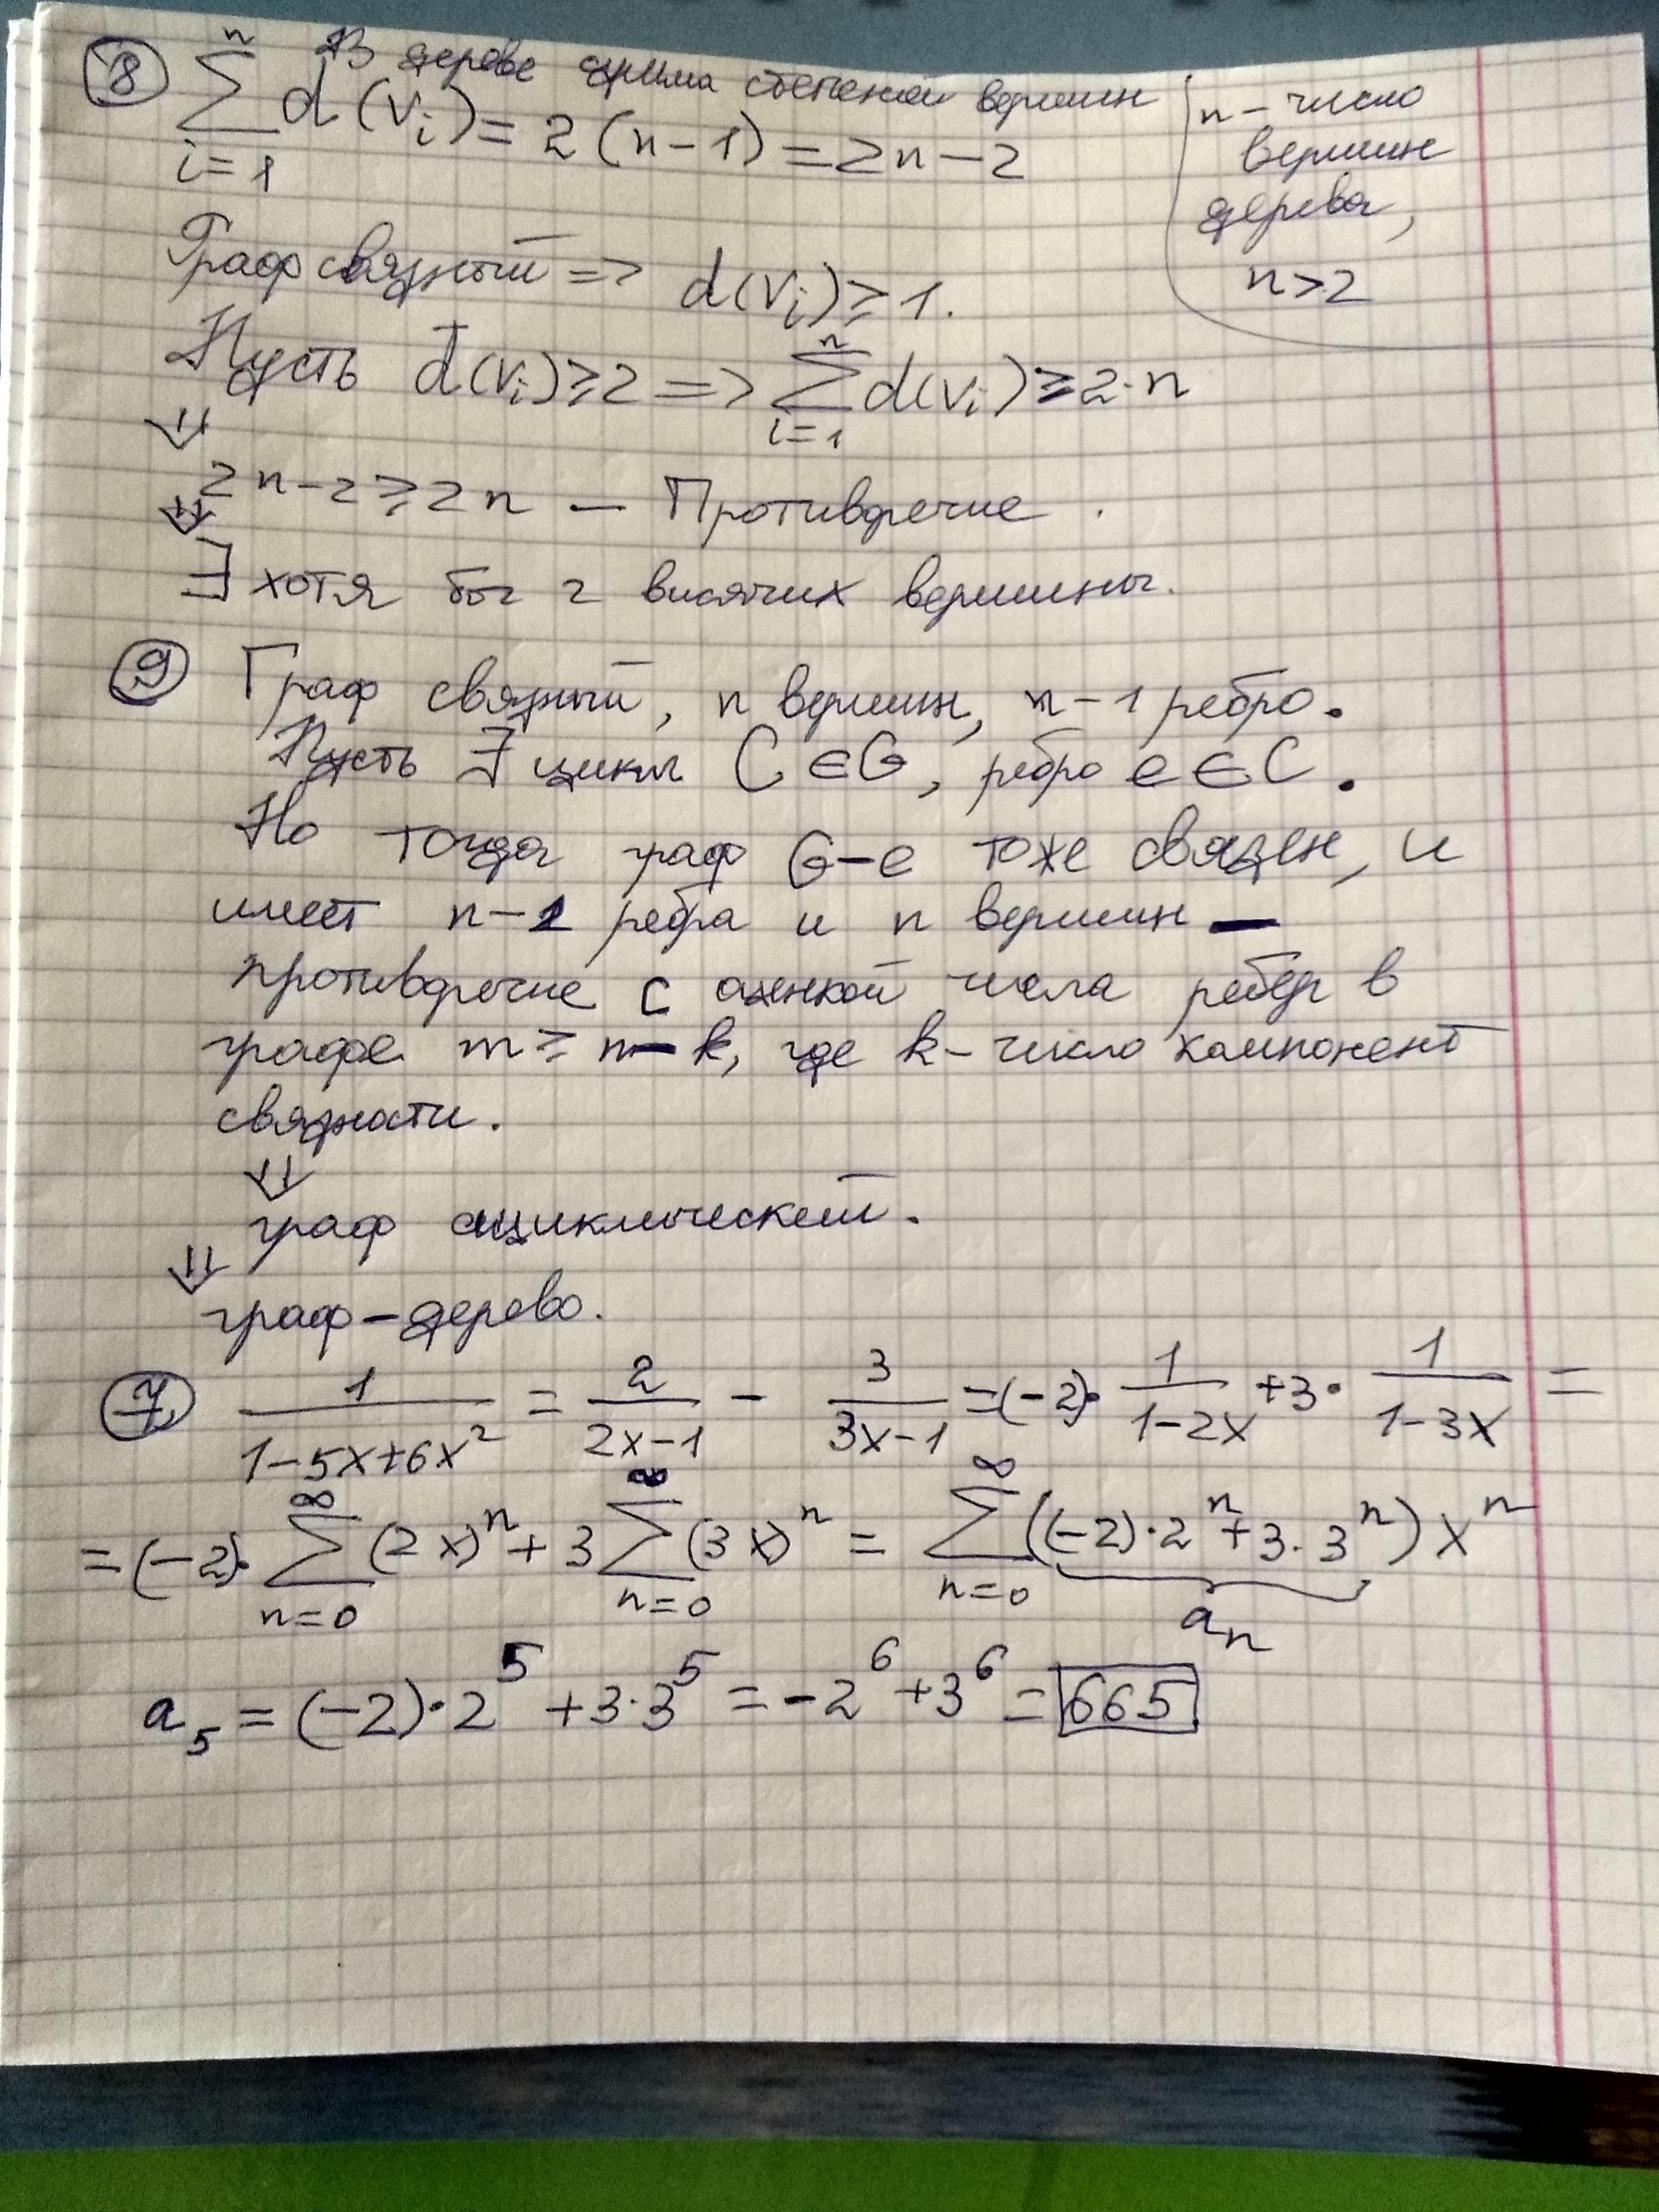 ⑧ В дереве сумма степеней вершин
\sum_{i=1}^{n} d(v_i) = 2(n-1) = 2n-2
n - число
вершин
дерева,
n>2
Граф связный => d(v_i) ≥ 1.
Пусть d(v_i) ≥ 2 => \sum_{i=1}^{n} d(v_i) ≥ 2·n
⇓
2n-2 ≥ 2n — Противоречие.
⇓
∃ хотя бы 2 висячих вершины.
⑨ Граф связный, n вершин, n-1 ребро.
Пусть ∃ цикл C ∈ G, ребро e ∈ C.
Но тогда граф G-e тоже связен, и
имеет n-2 ребра и n вершин —
противоречие с оценкой числа ребер в
графе m ≥ n-k, где k - число компонент
связности.
⇓
граф ациклический.
⇓
граф - дерево.
⑦ \frac{1}{1-5x+6x^2} = \frac{2}{2x-1} - \frac{3}{3x-1} = (-2)·\frac{1}{1-2x} + 3·\frac{1}{1-3x} =
= (-2)·\sum_{n=0}^{∞} (2x)^n + 3\sum_{n=0}^{∞} (3x)^n = \sum_{n=0}^{∞} ((-2)·2^n + 3·3^n) x^n
a_n
a_5 = (-2)·2^5 + 3·3^5 = -2^6 + 3^6 = 665